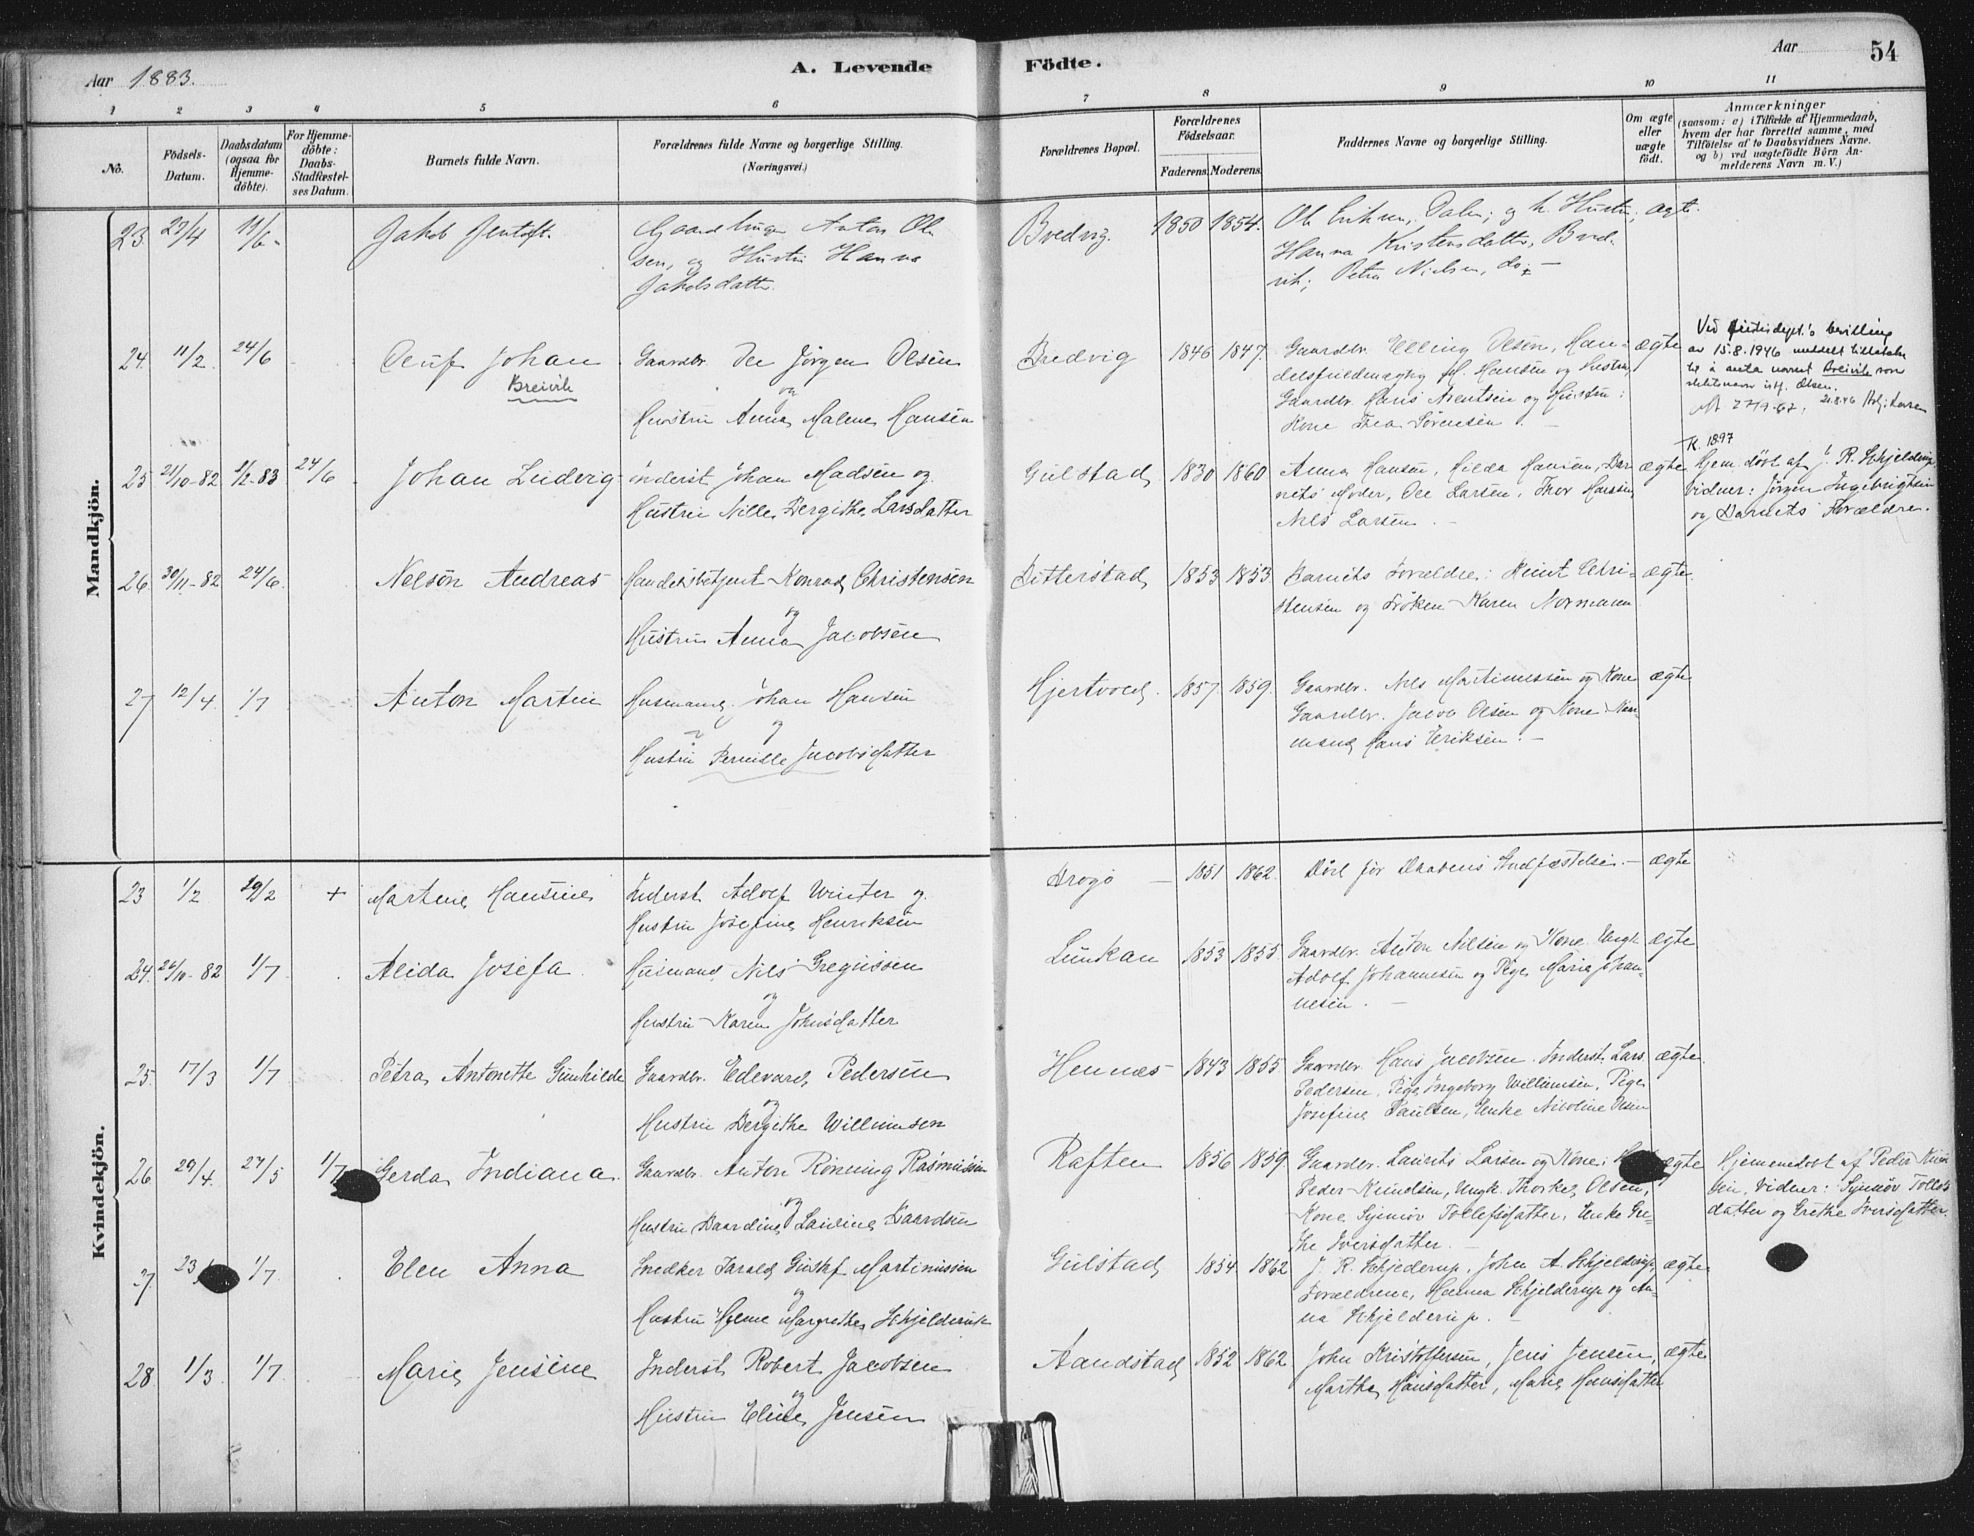 Aar 1883.
A. Levende
Födte.
Aar
54
1 2 3 4 5 6 7 8 9 10 11
No.
Födsels-
Datum.
Daabsdatum
(ogsaa for
Hjemme-
döbte).
For Hjemme-
döbte:
Daabs-
Stadfæstel-
ses Datum.
Barnets fulde Navn.
Forældrenes fulde Navne og borgerlige Stilling.
(Næringsvei.)
Forældrenes Bopæl.
Forældrenes
Födselsaar.
Faderens. Moderens.
Faddernes Navne og borgerlige Stilling.
Om ægte
eller
uægte
födt.
Anmærkninger
(saasom: a) i Tilfælde af Hjemmedaab,
hvem der har forrettet samme, med
Tilföielse af to Daabsvidners Navne.
og b) ved uægtefödte Börn An-
melderens Navn m. V.)
Mandkjön.
23. 29/4 11/6 Jakob Jentoft. Anton Ol-
sen, og Hustru Hanna
Jakobsdatter
Bredvig. 1850 1854. Ole Eriksen, Dalen; og h. Hustru, ægte.
Hanna Kristensdatter, Bred-
vik; Petra Nielsen, do. —
24. 11/2. 24/6 Oluf Johan Gaardbr. Ole Jörgen Olsen
Breivik
og
Hustru Anna Malene Hansen
Bredvig 1846 1847. Gaardbr. Elling Olsen, Han- ægte
delsfuldmægtig M. Hansen og Hustru,
Gaardbr. Hans Arentsen og Hustru;
Kone Thea Sörensen.
Ved Justisdept.'s bevilling
av 15.8.1946 meddelt tillatelse
til å anta navnet Breivik som
slektsnavn istf. Olsen.
K. 1897
25 21/10-82 1/2-83 24/6 Johan Ludvig Inderst Johan Madsen og
Hustru Nille Bergithe Larsdatter
Gulstad 1830 1860 Anna Hansen, Hilda Hansen, Bar- ægte
nets Moder, Ole Larsen, Thor Hansen,
Nils Larsen. —
Hjem. döbt af J. R. Schjelderup
Vidner: Jörgen Ingebrigtsen
og Barnets Forældre.
26. 30/11-82 24/6. Nelson Andreas Handelsbetjent Konrad Christensen
og
Hustru Anna Jacobsen
Ditterstad 1853 1853 Barnets Forældre: Knut Chri- ægte
stensen og Fröken Karen Normann
27 12/4 1/7 Anton Martin Husmand. Johan Hansen
og
Hustru Pernille Jacobsdatter
Hjertvold. 1857. 1859. Gaardbr. Nils Martinussen og Kone ægte
Gaardbr. Jacob Olsen og Kone
Hans Eriksen. —
Kvindekjön.
23 1/2 29/2 + Martine Hansine Inderst Adolf Winter og
Hustru Josefine Henriksen
Brogö — 1851 1862. Död för Daabens Stadfæstelse. — ægte
24. 26/11-82 1/7 Alida Josefa Husmand Nils Gregussen
og
Hustru Karen Johnsdatter
Lunkan 1853 1855 Gaardbr. Anton Nilsen og Kone. Ungk. ægte
Adolf Johannesen og Pige Marie Johan-
nesen. —
25. 17/3 1/7 Petra Antonette Gunhilde Gaardbr. Edevard Pedersen
og
Hustru Bergithe Willumsen
Hennæs 1843 1855 Gaardbr. Hans Jacobsen. Inderst. Lars ægte
Pedersen, Pige Ingeborg Willumsen, Pige
Josefine Paulsen, Enke Nicoline Olsen
26. 29/4. 27/5 1/7 Gerda Indiana. Gaardbr. Anton Rönning Rasmussen
og
Hustru Baardine Lauline Baardsen
Raften 1856 1859 Gaardbr. Laurits Larsen og Kone; ægte
Peder Knudsen, Ungk. Thorkel Olsen,
Kone Synnöv Tollefsdatter, Enke Gre-
the Iversdatter. —
Hjemmedöbt af Peder Knud-
sen. Vidner: Synnöv Tollefs-
datter og Grethe Iversdatter.
27 23 1/7 Elen Anna Snedker Harald Gustaf Martinussen
og
Hustru Helene Margrethe Schjelderup
Gulstad 1854. 1862 J. R. Schjelderup, John A. Schjelderup, ægte
Forældrene, Hanna Schjelderup og An-
na Schjelderup. —
28 1/3 1/7. Marie Jensine Inderst Robert Jacobsen
og
Hustru Eline Jensen
Aandstad 1852 1862 John Kristoffersen, Jens Jensen, ægte
Martha Hansdatter, Marie Hansdatter